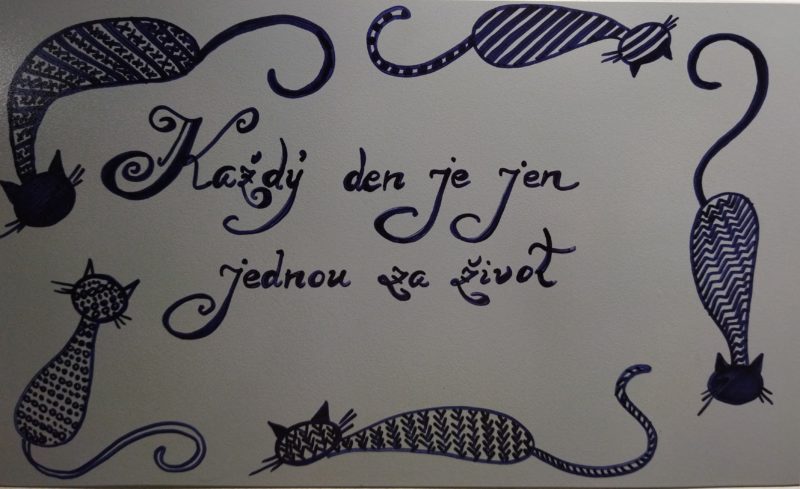 Každý den je jen
jednou za život